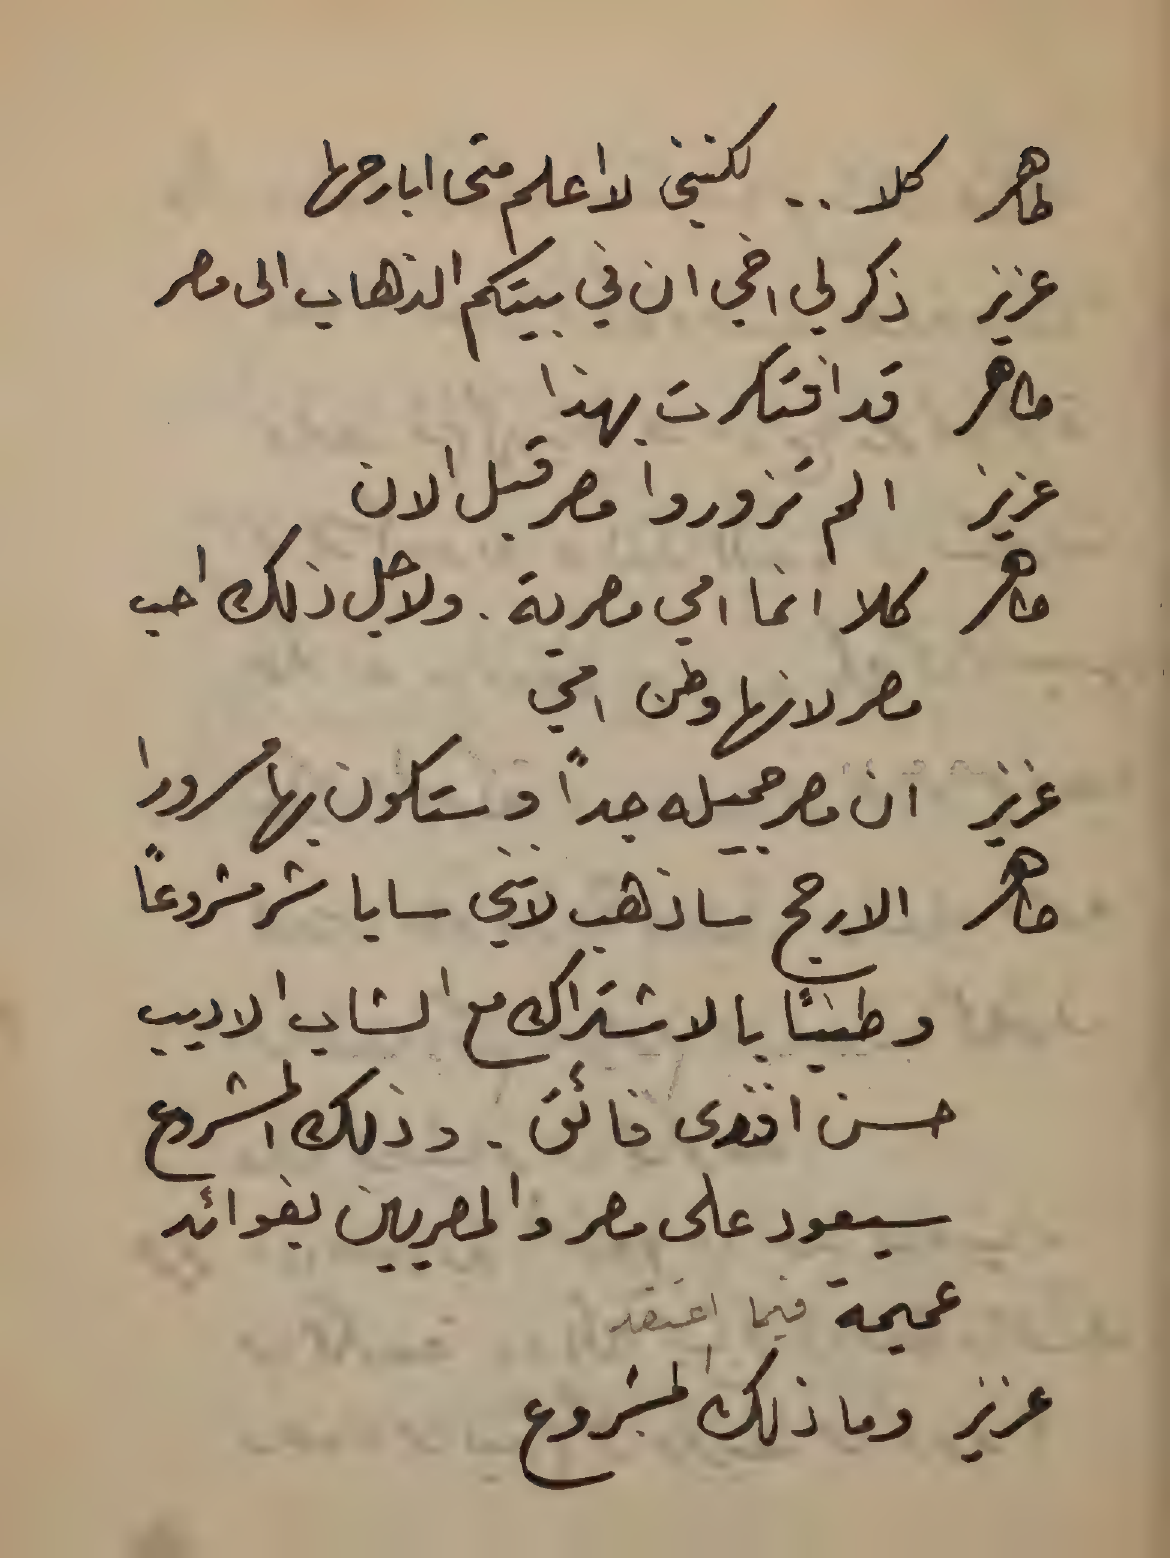 ماهر كلا .. لكنني لا اعلم متى ابارحها
عزيز ذكر لي اخي ان في نيتكم الذهاب الى مصر
ماهر قد افتكرت بهذا
عزيز الم تزوروا مصر قبل الان
ماهر كلا انما امي مصرية . ولاجل ذلك احب
مصر لانها وطن امي
عزيز ان مصر جميله جداً وستكون بها مسرورا
ماهر الارجح ساذهب لانني ساباشر مشروعاً
وطنيًا بالاشتراك مع الشاب الاديب
حسن افندى فائق . وذلك المشروع
سيعود على مصر والمصريين بفوائد
عميمة فيما اعتقد
عزيز وما ذلك المشروع